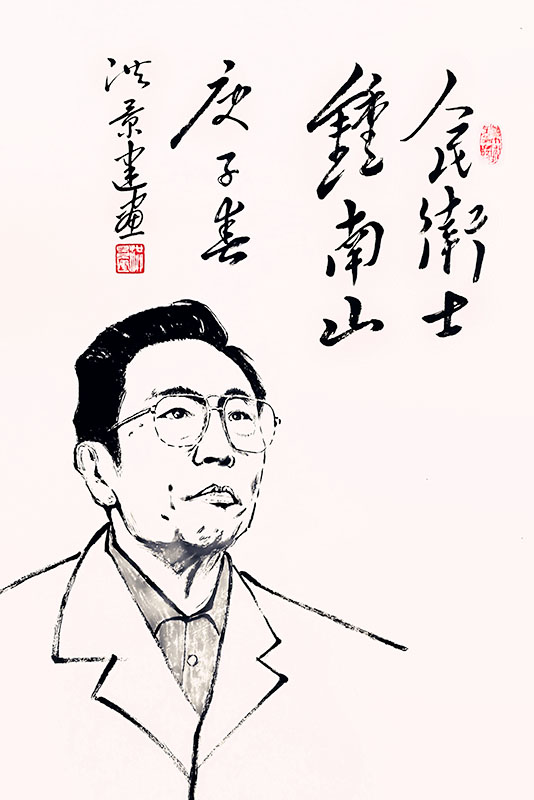 人民衛士
鍾南山
庚子春
洪景建畫